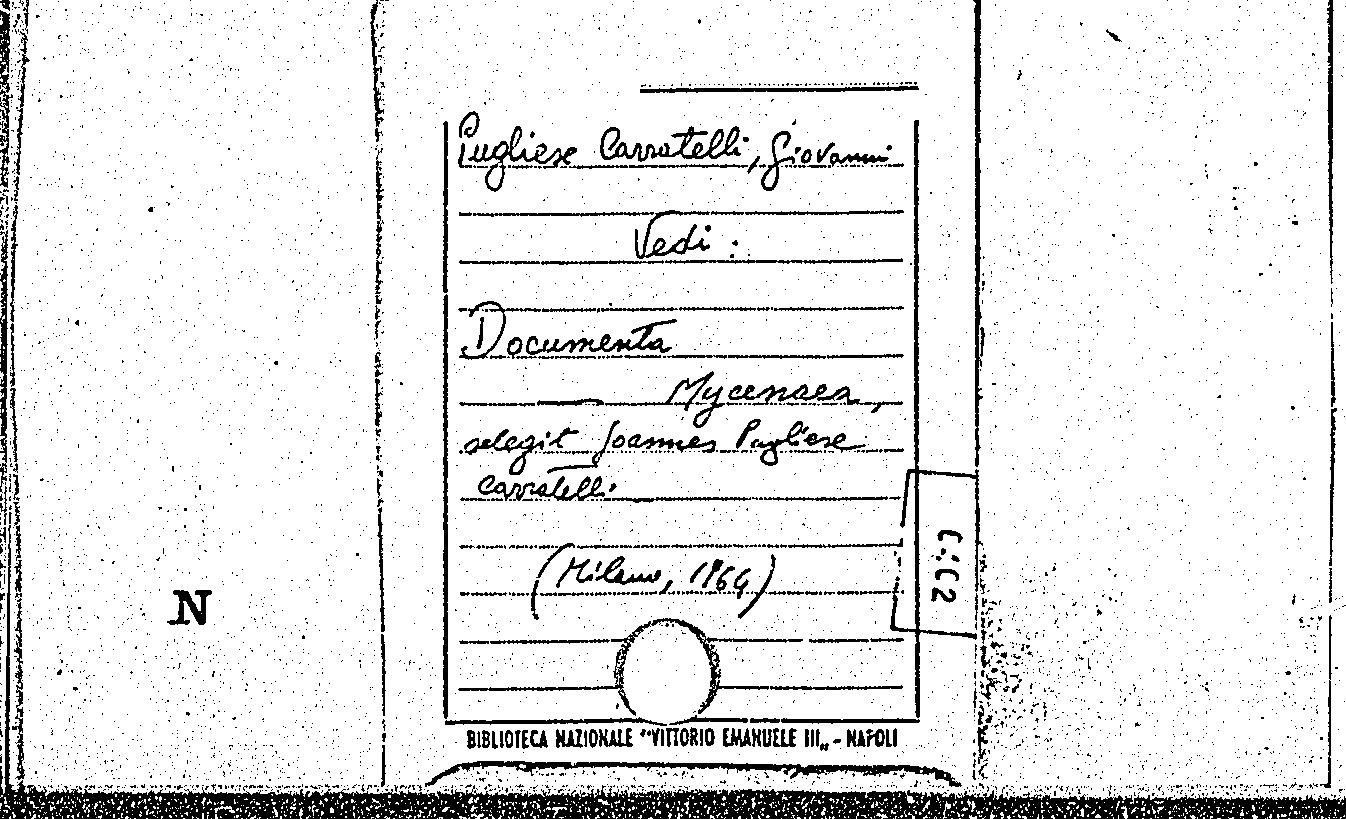 Pugliese Carratelli, Giovanni
Vedi :
Documenta
Mycenaea,
selegit Joannes Pugliese
Carratelli.
(Milano, 1964)
N
BIBLIOTECA NAZIONALE "VITTORIO EMANUELE III„ - NAPOLI